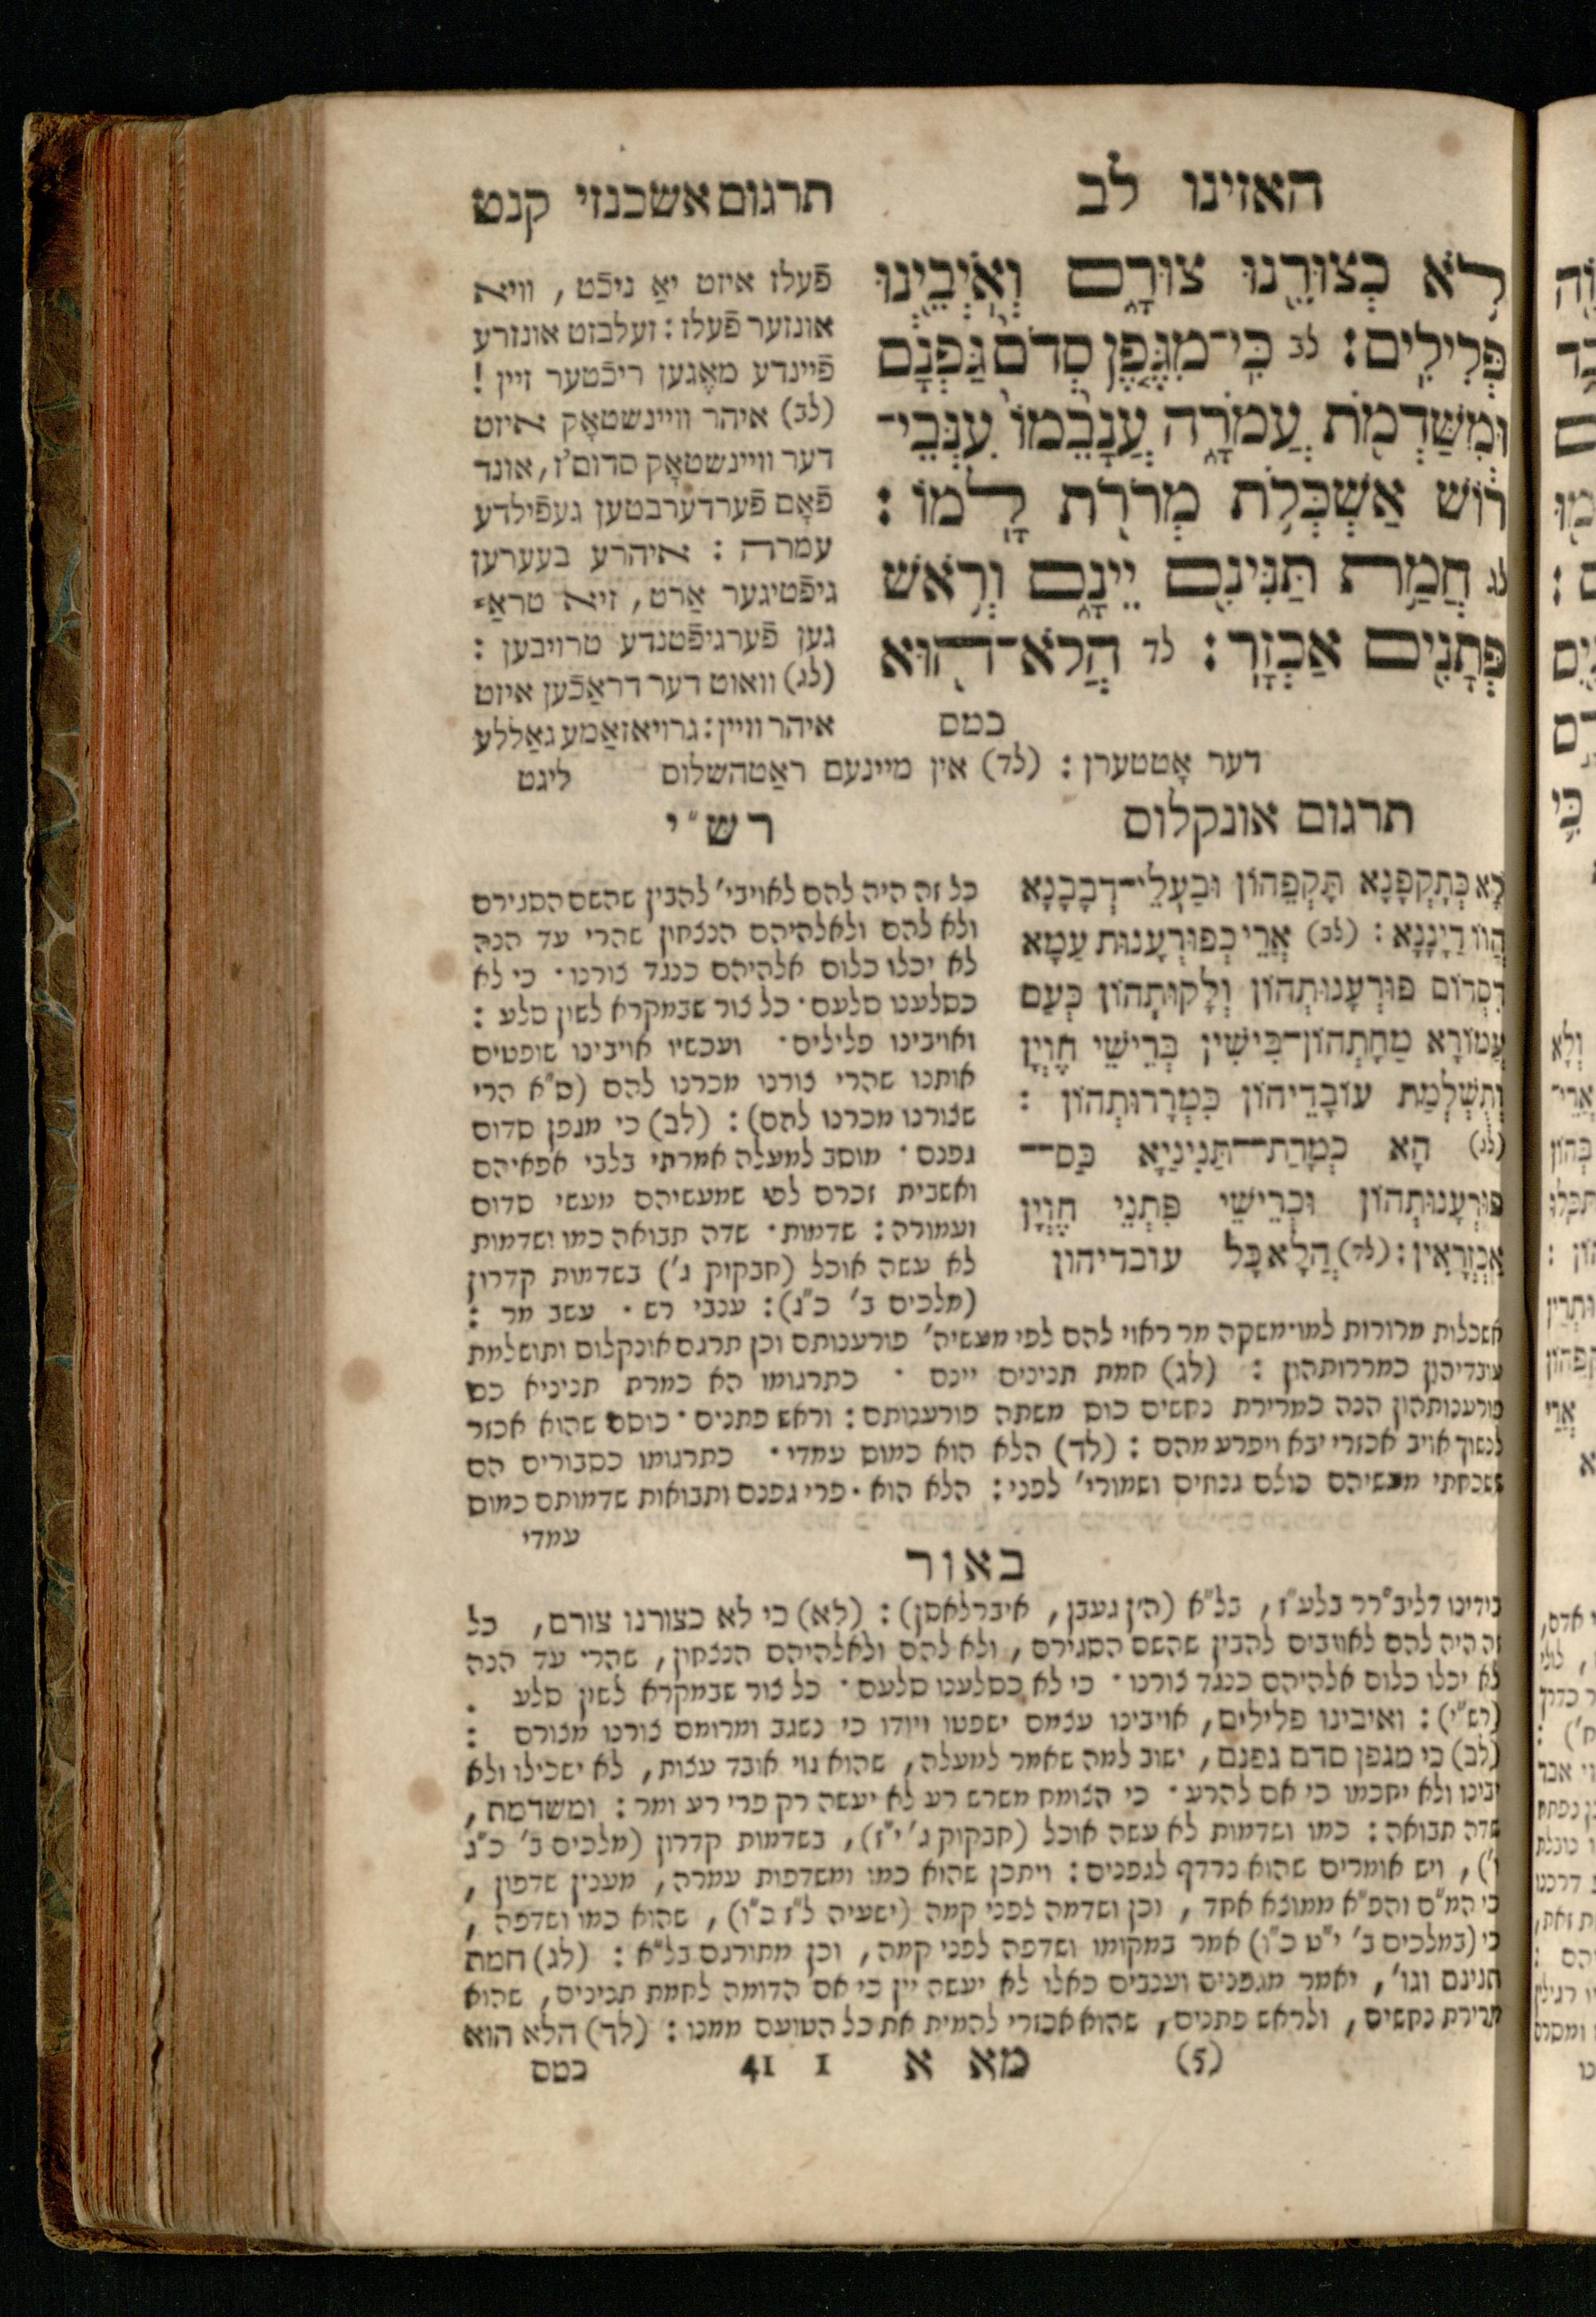 האזינו לב
תרגום אשכנזי קנט
לֹ֥א כְצוּרֵ֖נוּ צוּרָ֑ם וְאֹֽיְבֵ֖ינוּ
פְּלִילִֽים׃ לב כִּֽי־מִגֶּ֤פֶן סְדֹם֙ גַּפְנָ֔ם
וּמִשַּׁדְמֹ֖ת עֲמֹרָ֑ה עֲנָבֵ֙מוֹ֙ עִנְּבֵי־
ר֔וֹשׁ אַשְׁכְּלֹ֥ת מְרֹרֹ֖ת לָֽמוֹ׃
לג חֲמַ֥ת תַּנִּינִ֖ם יֵינָ֑ם וְרֹ֥אשׁ
פְּתָנִ֖ים אַכְזָֽר׃ לד הֲלֹא־ה֖וּא
כמס
פֿעלז איזט יאַ ניכֿט, וויא
אונזער פֿעלז: זעלבזט אונזרע
פֿיינדע מאָגען ריכֿטער זיין!
(לב) איהר וויינשטאָק איזט
דער וויינשטאָק סדום'ז, אונד
פֿאָם פֿערדערבטען געפֿילדע
עמרה: איהרע בעערען
גיפֿטיגער אַרט, זיא טראַ-
גען פֿערגיפֿטנדע טרויבען:
(לג) וואוט דער דראַכֿען איזט
איהר וויין: גרויאזאַמע גאַללע
דער אָטטערן: (לד) אין מיינעם ראַטהשלוס
ליגט
תרגום אונקלוס
לָא כְּתָקְפָנָא תָּקְפֵהוֹן וּבַעֲלֵי־דְבָבָנָא
הֲווֹ דַיָנָנָא: (לב) אֲרֵי כְפוּרְעָנוּת עַמָא
דִסְדוֹם פּוּרְעָנוּתְהוֹן וְלָקוּתְהוֹן כְּעַם
עֲמוֹרָא מַחָתְהוֹן־בִּישִׁין כְּרֵישֵׁי חִוְיָן
וְתֻשְׁלְמַת עוֹבָדֵיהוֹן כִּמְרָרוּתְהוֹן:
(לג) הָא כִמְרַת־תַּנִינַיָא כַּס־
פּוּרְעָנוּתְהוֹן וּכְרֵישֵׁי פִּתְנֵי חִוְיָן
אַכְזְרָאִין: (לד) הֲלָא כָּל עובדיהון
רש"י
כל זה היה להם לאויבי' להבין שהשם הסגירם
ולא להם ולאלהיהם הנצחון שהרי עד הנה
לא יכלו כלום אלהיהם כנגד צורנו· כי לא
כסלענו סלעם· כל צור שבמקרא לשון סלע:
ואויבינו פלילים· ועכשיו אויבינו שופטים
אותנו שהרי צורנו מכרנו להם (ס"א הרי
שצורנו מכרנו להם): (לב) כי מגפן סדום
גפנם· מוסב למעלה אמרתי בלבי אפאיהם
ואשבית זכרם לפי שמעשיהם מעשי סדום
ועמורה: שדמות· שדה תבואה כמו ושדמות
לא עשה אוכל (חבקוק ג') בשדמות קדרון
(מלכים ב' כ"ג): ענבי רש· עשב מר:
אשכלות מרורות למו· משקה מר ראוי להם לפי מעשיה' פורענותם וכן תרגם אונקלום ותושלמת
עובדיהון כמררותהון: (לג) חמת תנינים יינם· כתרגומו הא כמרת תניניא כס
פורענותהון הנה כמרירת נחשים כוס משתה פורענותם: וראש פתנים· כוסם שהוא אכזר
לנשוך אויב אכזרי יבא ויפרע מהם: (לד) הלא הוא כמום עמדי· כתרגומו כסבורים הם
ששכחתי מעשיהם כולם גנוזים ושמורי' לפני: הלא הוא· פרי גפנם ותבואות שדמותם כמום
עמדי
באור
בל"א (הין געבן, איברלאסן): (לא) כי לא כצורנו צורם, כל
זה היה להם לאויבים להבין שהשם הסגירם, ולא להם ולאלהיהם הנצחון, שהרי עד הנה
לא יכלו כלום אלהיהם כנגד צורנו· כי לא כסלענו סלעם· כל צור שבמקרא לשון סלע.
(רש"י): ואיבינו פלילים, אויבינו עצמם ישפטו ויודו כי נשגב ומרומם צורנו מצורם:
(לב) כי מגפן סדם גפנם, ישוב למה שאמר למעלה, שהוא גוי אובד עצות, לא ישכילו ולא
יבינו ולא יחכמו כי אם להרע· כי הצומח משרש רע לא יעשה רק פרי רע ומר: ומשדמת,
שדה תבואה: כמו ושדמות לא עשה אוכל (חבקוק ג' י"ז), בשדמות קדרון (מלכים ב' כ"ג
ו'), ויש אומרים שהוא נרדף לגפנים: ויתכן שהוא כמו ומשדפות עמרה, מענין שדפון,
כי המ"ם והפ"א ממוצא אחד, וכן ושדמה לפני קמה (ישעיה ל"ז כ"ז), שהוא כמו ושדפה,
כי (במלכים ב' י"ט כ"ו) אמר במקומו ושדפה לפני קמה, וכן מתורגם בל"א: (לג) חמת
תנינם וגו', יאמר מגפנים וענבים כאלו לא יעשה יין כי אם הדומה לחמת תנינים, שהוא
מרירת נחשים, ולראש פתנים, שהוא אכזרי להמית את כל הטועם ממנו: (לד) הלא הוא
(5) מא א 1 41 כמס